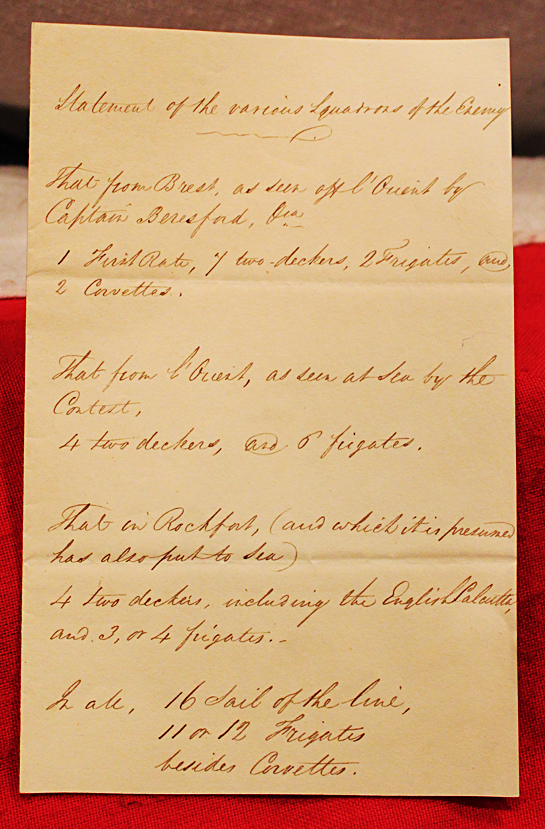 Statement of the various Squadrons of the Enemy
That from Brest, as seen off l'Orient by
Captain Beresford,
1 First Rate, 7 two-deckers, 2 Frigates, and
2 Corvettes.
That from l'Orient, as seen at Sea by the
Contest,
4 two deckers, and 6 frigates.
That in Rochfort, (and which it is presumed
has also put to Sea)
4 two deckers, including the English Calcutta,
and 3, or 4 frigates.-
In all, 16 Sail of the line,
11 or 12 Frigates
besides Corvettes.